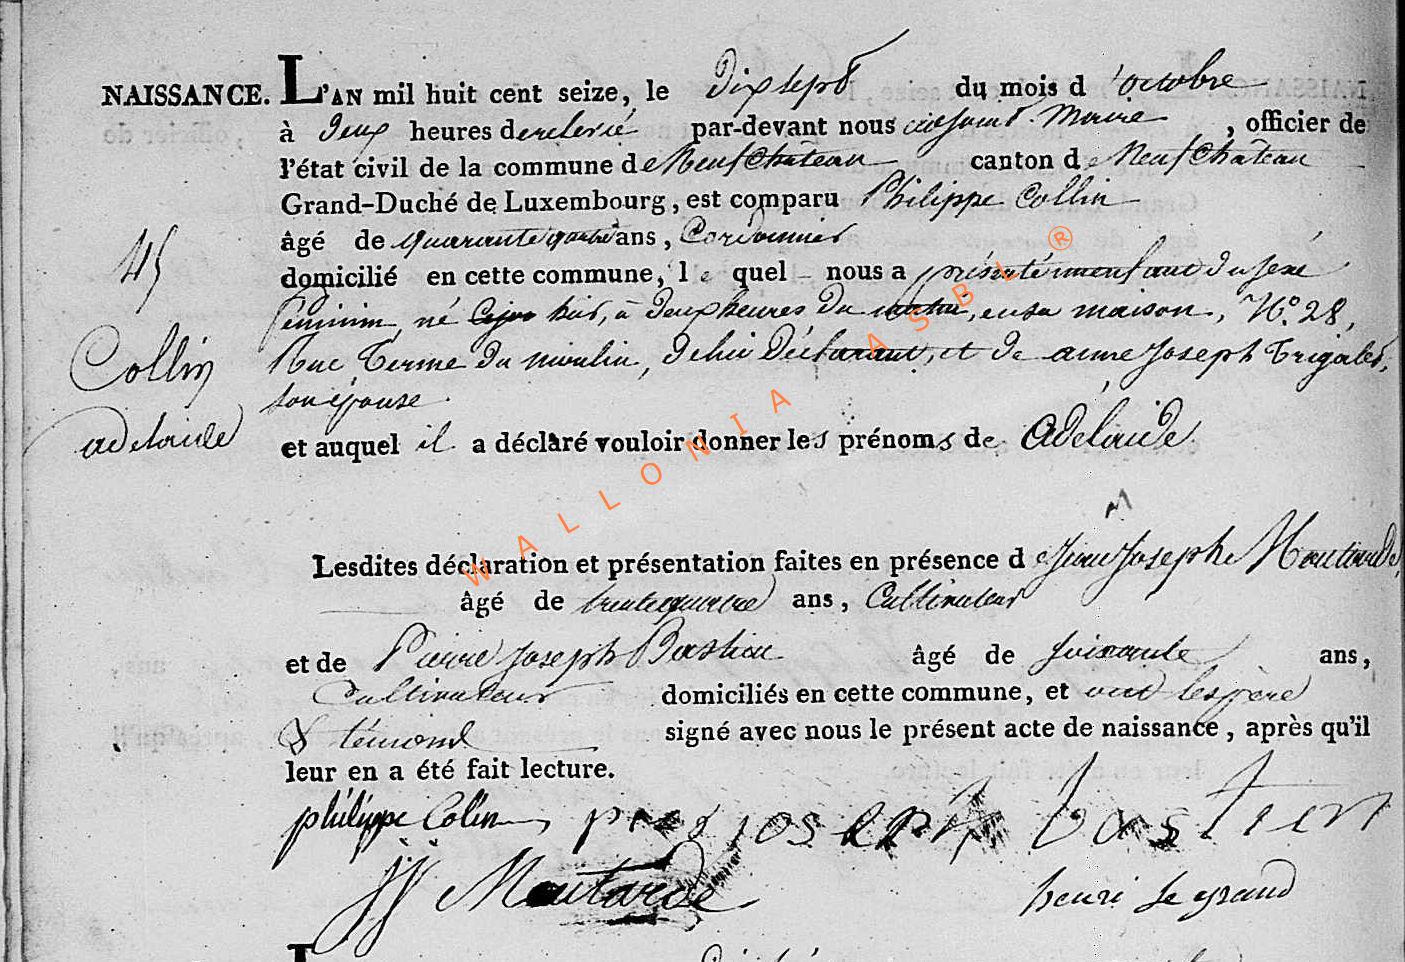 NAISSANCE. L'AN mil huit cent seize, le dix sept du mois d'octobre
à deux heures de relevée par-devant nous adjoint Maire, officier de
l'état civil de la commune de Neufchâteau canton de Neufchâteau
Grand-Duché de Luxembourg, est comparu Philippe Collin
âgé de quarante quatre ans, Cordonnier
domicilié en cette commune, lequel nous a présenté un enfant du sexe
féminin, né hier, à deux heures du matin, en sa maison, N.° 28,
Rue Terme du moulin, de lui déclarant, et de anne Joseph
son épouse.
et auquel il a déclaré vouloir donner les prénoms de Adélaïde
45
Collin
adelaide
Lesdites déclaration et présentation faites en présence de Jean Joseph Moutarde,
âgé de trente quatre ans, Cultivateur
et de Pierre Joseph Bastien âgé de soixante ans,
Cultivateur domiciliés en cette commune, et ont les père
& témoins signé avec nous le présent acte de naissance, après qu'il
leur en a été fait lecture.
philippe Colin joseph bastien
JJ Moutarde henri le grand
WALLONIA ASBL ®